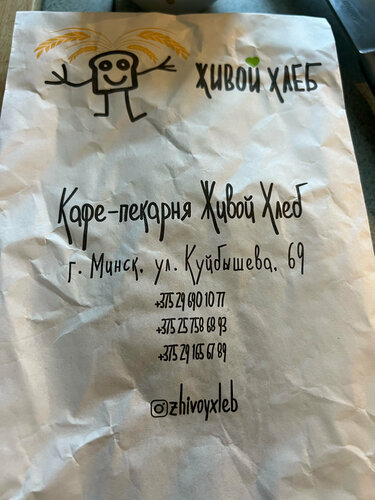 ЖИВОЙ ХЛЕБ
Кафе-пекарня Живой Хлеб
г. Минск, ул. Куйбышева, 69
+375 29 690 10 77
+375 25 758 68 93
+375 29 165 67 89
zhivoyxleb